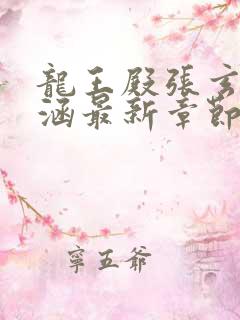 龍王殿張玄
涵最新章節
寧五爺